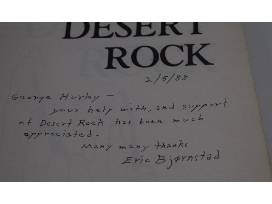 DESERT
ROCK
2/5/88
George Hurley —
your help with, and support
of Desert Rock has been much
appreciated.
Many many thanks
Eric Bjørnstad